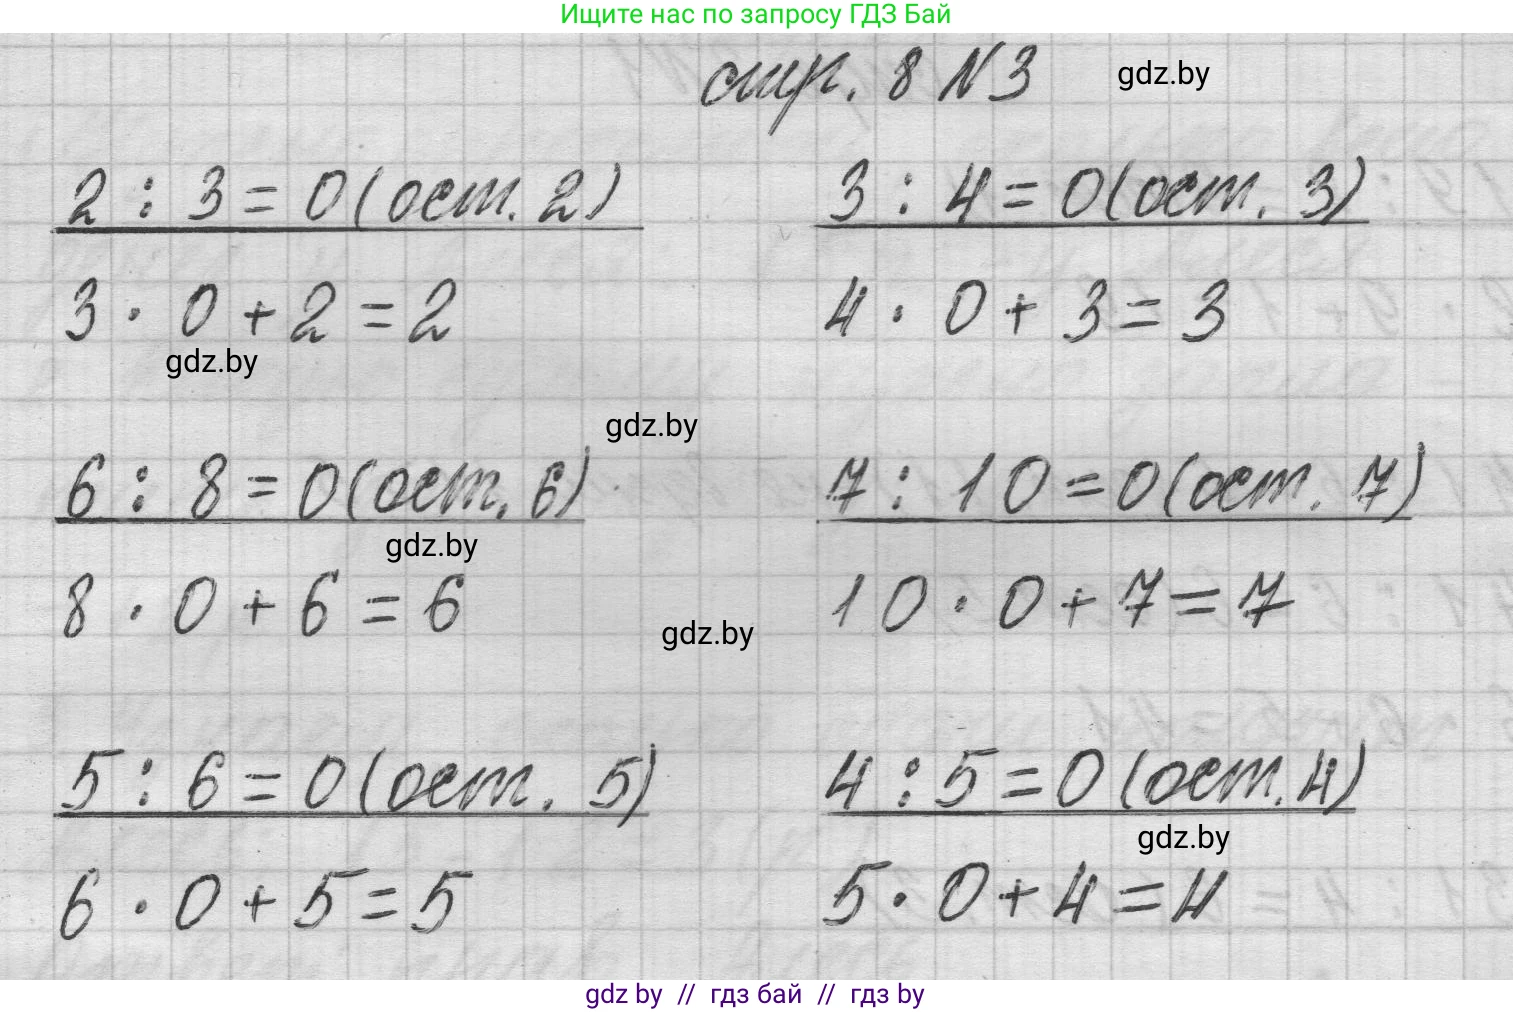 Ищите нас по запросу ГДЗ Бай
стр. 8 N 3
gdz.by
2 : 3 = 0 (ост. 2)
3 : 4 = 0 (ост. 3)
3 · 0 + 2 = 2
4 · 0 + 3 = 3
gdz.by
gdz.by
6 : 8 = 0 (ост. 6)
7 : 10 = 0 (ост. 7)
gdz.by
8 · 0 + 6 = 6
10 · 0 + 7 = 7
gdz.by
5 : 6 = 0 (ост. 5)
4 : 5 = 0 (ост. 4)
gdz.by
6 · 0 + 5 = 5
5 · 0 + 4 = 4
gdz by // гдз бай // гдз by